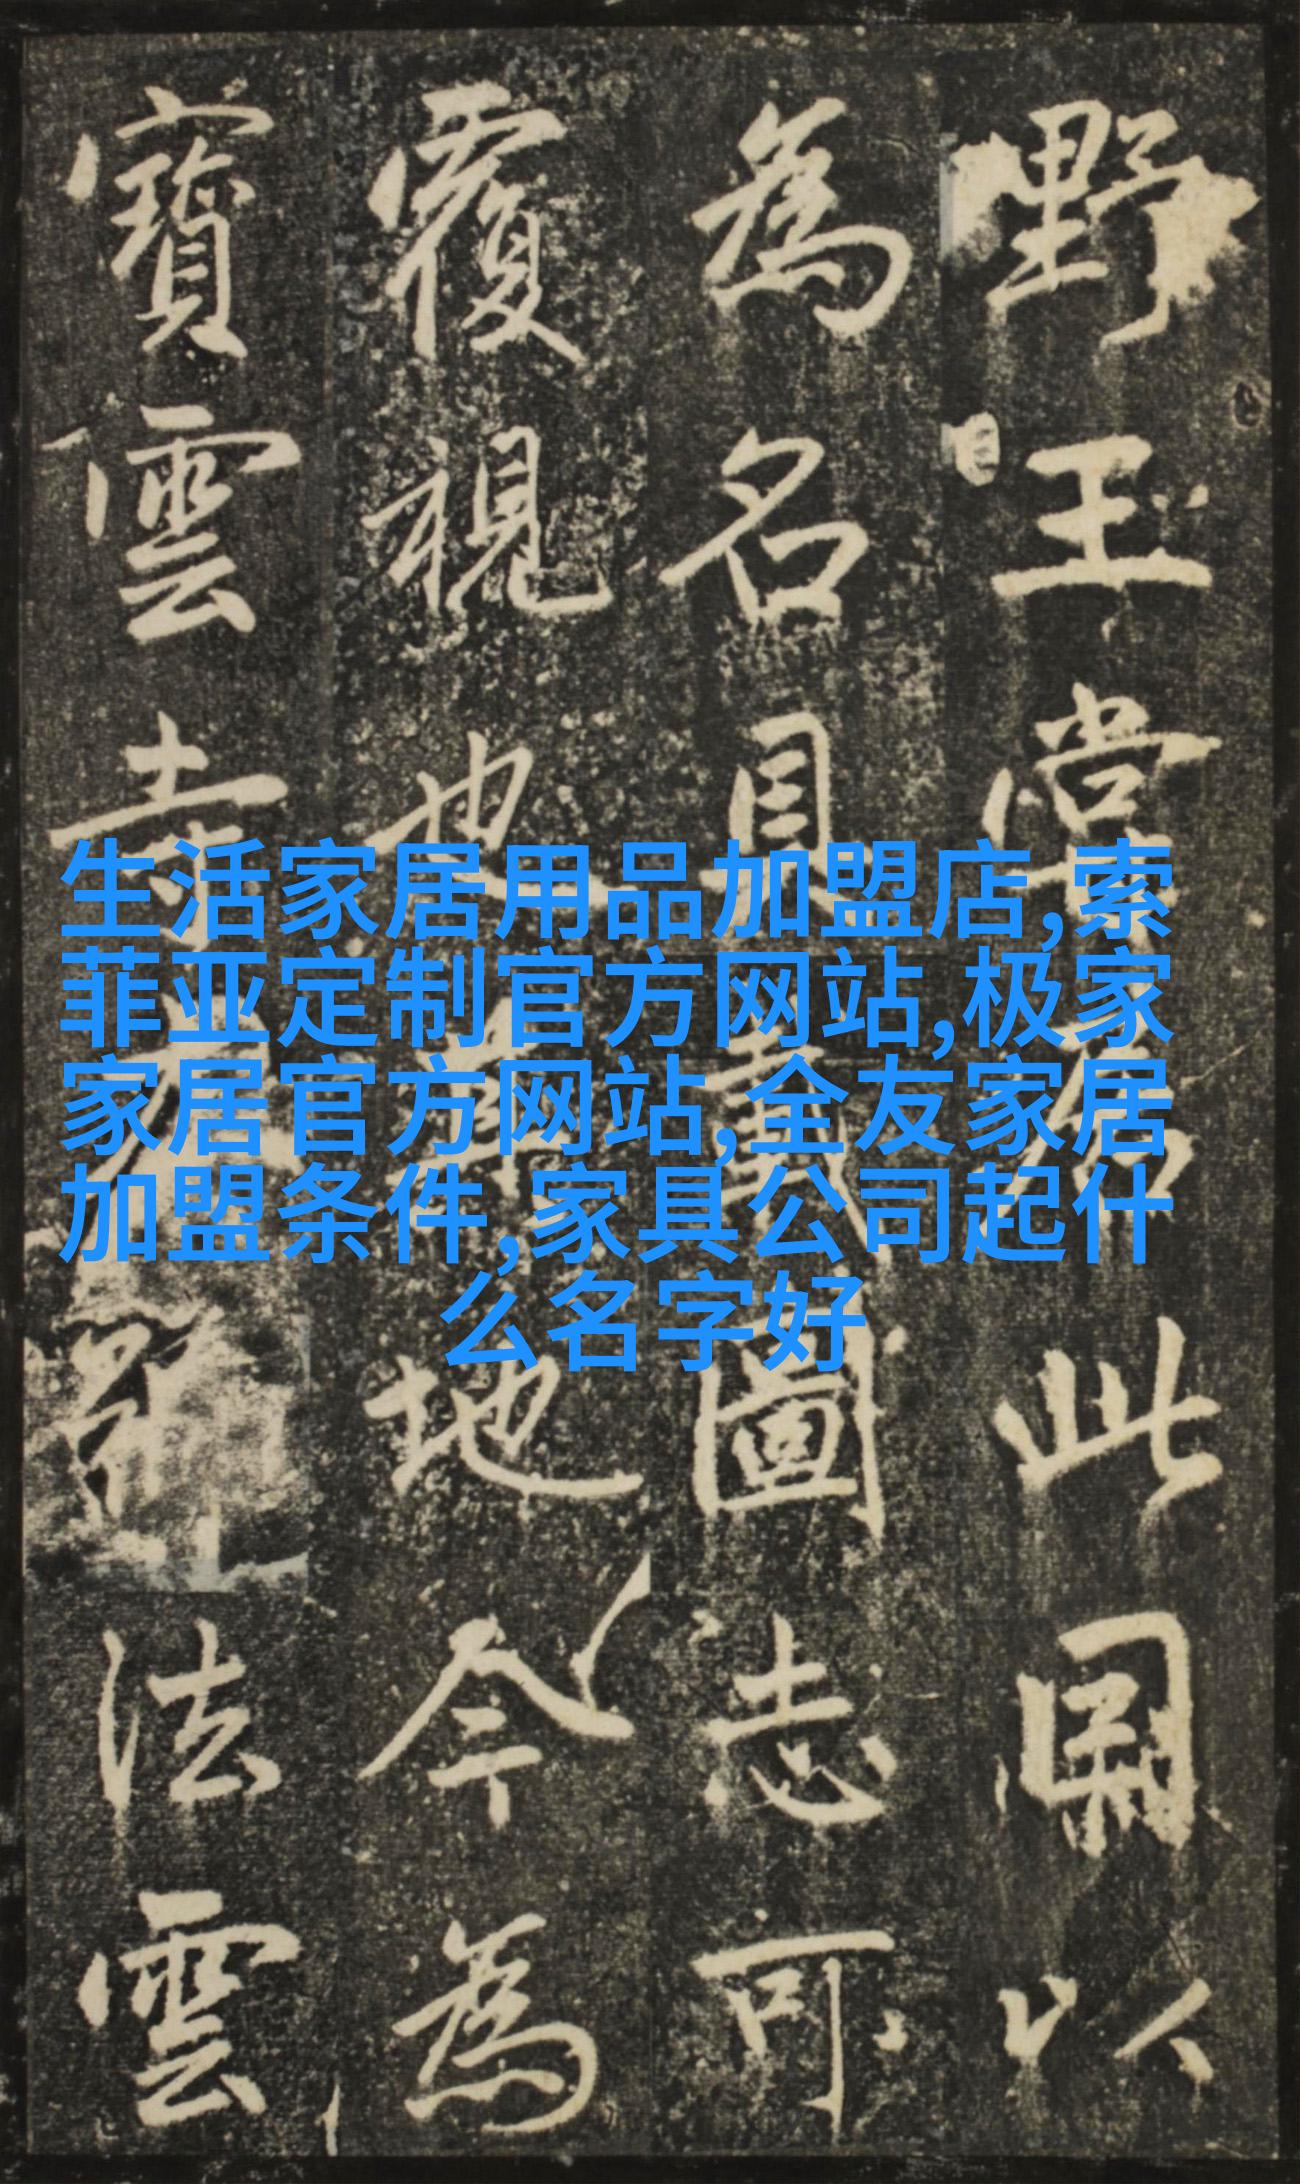 生活家居用品加盟店,索
菲亚定制官方网站,极家
家居官方网站,全友家居
加盟条件,家具公司起什
么名字好
野王嘗居此因以
為名具載圖志可
覆視也其地今為
寶雲寺法雲